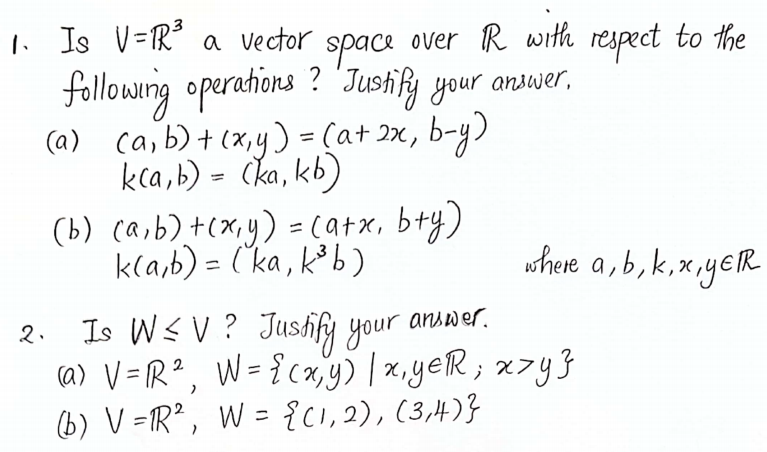 1. Is V=ℝ³ a vector space over ℝ with respect to the
following operations? Justify your answer.
(a) (a,b)+(x,y)=(a+2x, b-y)
k(a,b) = (ka, kb)
(b) (a,b)+(x,y)=(a+x, b+y)
k(a,b)=(ka, k³b) where a,b,k,x,y∈ℝ
2. Is W≤V? Justify your answer.
(a) V=ℝ², W={(x,y) | x,y∈ℝ; x>y}
(b) V=ℝ², W = {(1,2), (3,4)}